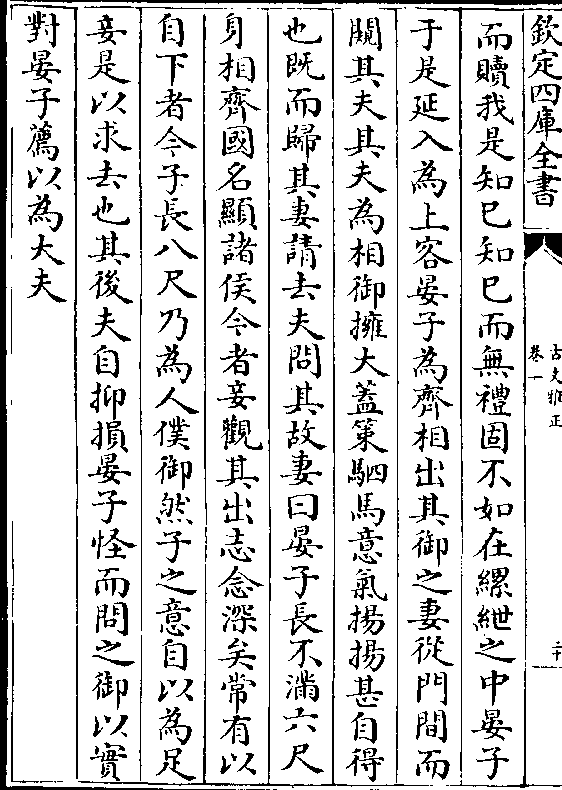 欽定四庫全書
古文雅正
卷一
二十
而贖我是知已知已而無禮固不如在縲紲之中晏子
于是延入為上客晏子為齊相出其御之妻從門間而
闚其夫其夫為相御擁大葢策駟馬意氣揚揚甚自得
也既而歸其妻請去夫問其故妻曰晏子長不滿六尺
身相齊國名顯諸侯今者妾觀其出志念深矣常有以
自下者今子長八尺乃為人僕御然子之意自以為足
妾是以求去也其後夫自抑損晏子怪而問之御以實
對晏子薦以為大夫